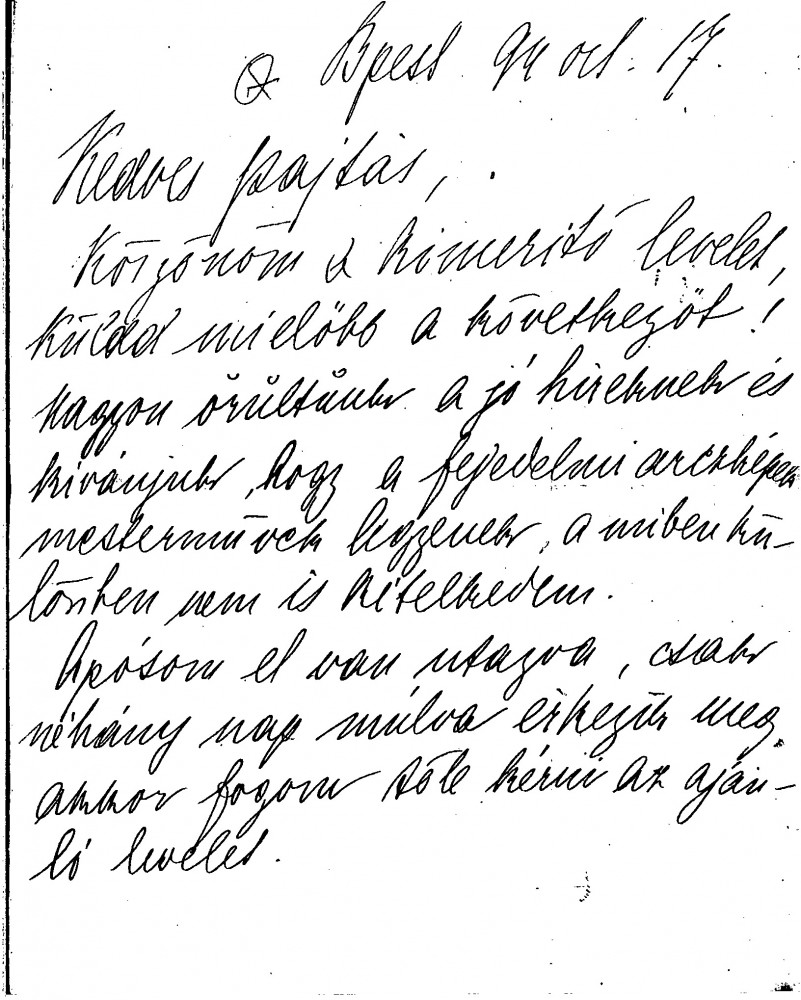 Bpest 94 oct. 17.
Kedves pajtás,
Köszönöm a kimeritő levelet,
Küldd mielőbb a következőt!
Nagyon örültünk a jó hireknek és
kivánjuk, hogy a fejedelmi arczképek
mesterművek legyenek, a miben kü-
lönben nem is kételkedem.
Apósom el van utazva, csak
néhány nap múlva érkezik meg,
akkor fogom tőle kérni az aján-
ló levelet.